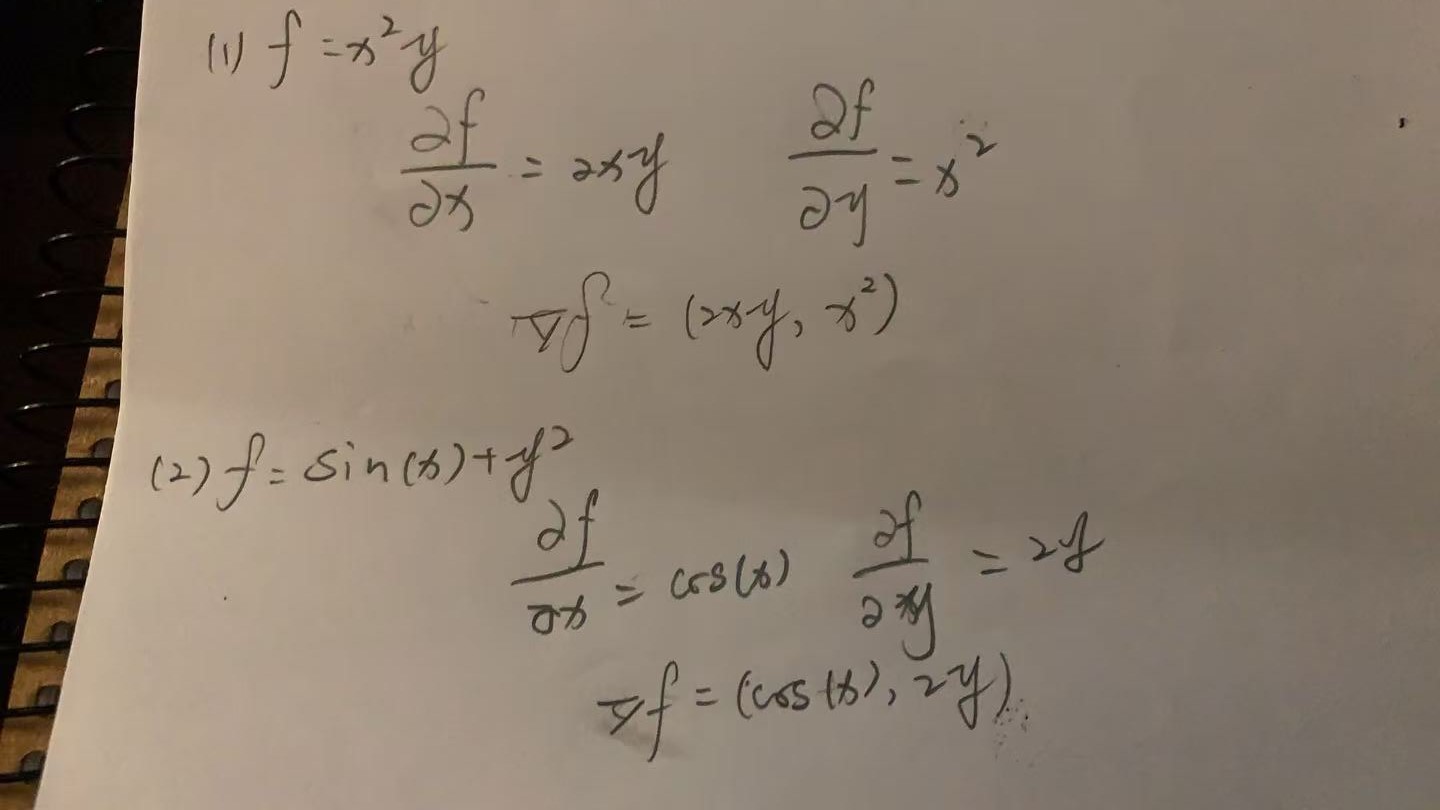 (1) f = x²y
∂f/∂x = 2xy ∂f/∂y = x²
∇f = (2xy, x²)
(2) f = sin(x) + y²
∂f/∂x = cos(x) ∂f/∂y = 2y
∇f = (cos(x), 2y)